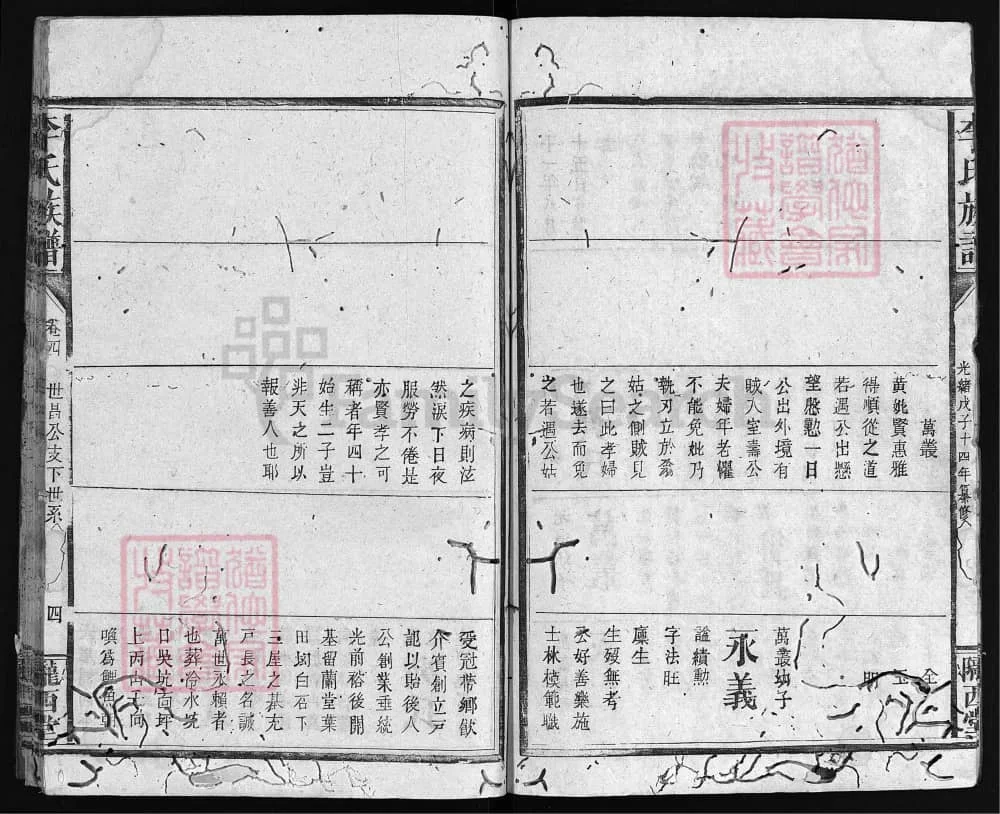 李氏族譜
光緒戊子十四年纂修
隴西堂
萬叢
黃妣賢惠雅
得順從之道
若遇公出懸
望慇懃一日
公出外境有
賊入室壽公
夫婦年老懼
不能免妣乃
執刃立於翁
姑之側賊見
之曰此孝婦
也遂去而免
之若遇公姑
之疾病則泫
然淚下日夜
服勞不倦是
亦賢孝之可
稱者年四十
始生二子豈
非天之所以
報善人也耶
仝
玉
明
萬叢幼子
永義
諡績勳
字法旺
廩生
生歿無考
公好善樂施
士林模範職
受冠帶鄉飲
介賓創立戸
記以貽後人
公創業垂統
光前裕後開
基留蘭堂葉
田坳白石下
三屋之基充
戸長之名誠
萬世永賴者
也葬冷水坑
口吳坑
上丙山壬向
喚爲
李氏族譜
卷四
世昌公支下世系
四
隴西堂
遵伽家譜學會特藏
FamilySearch